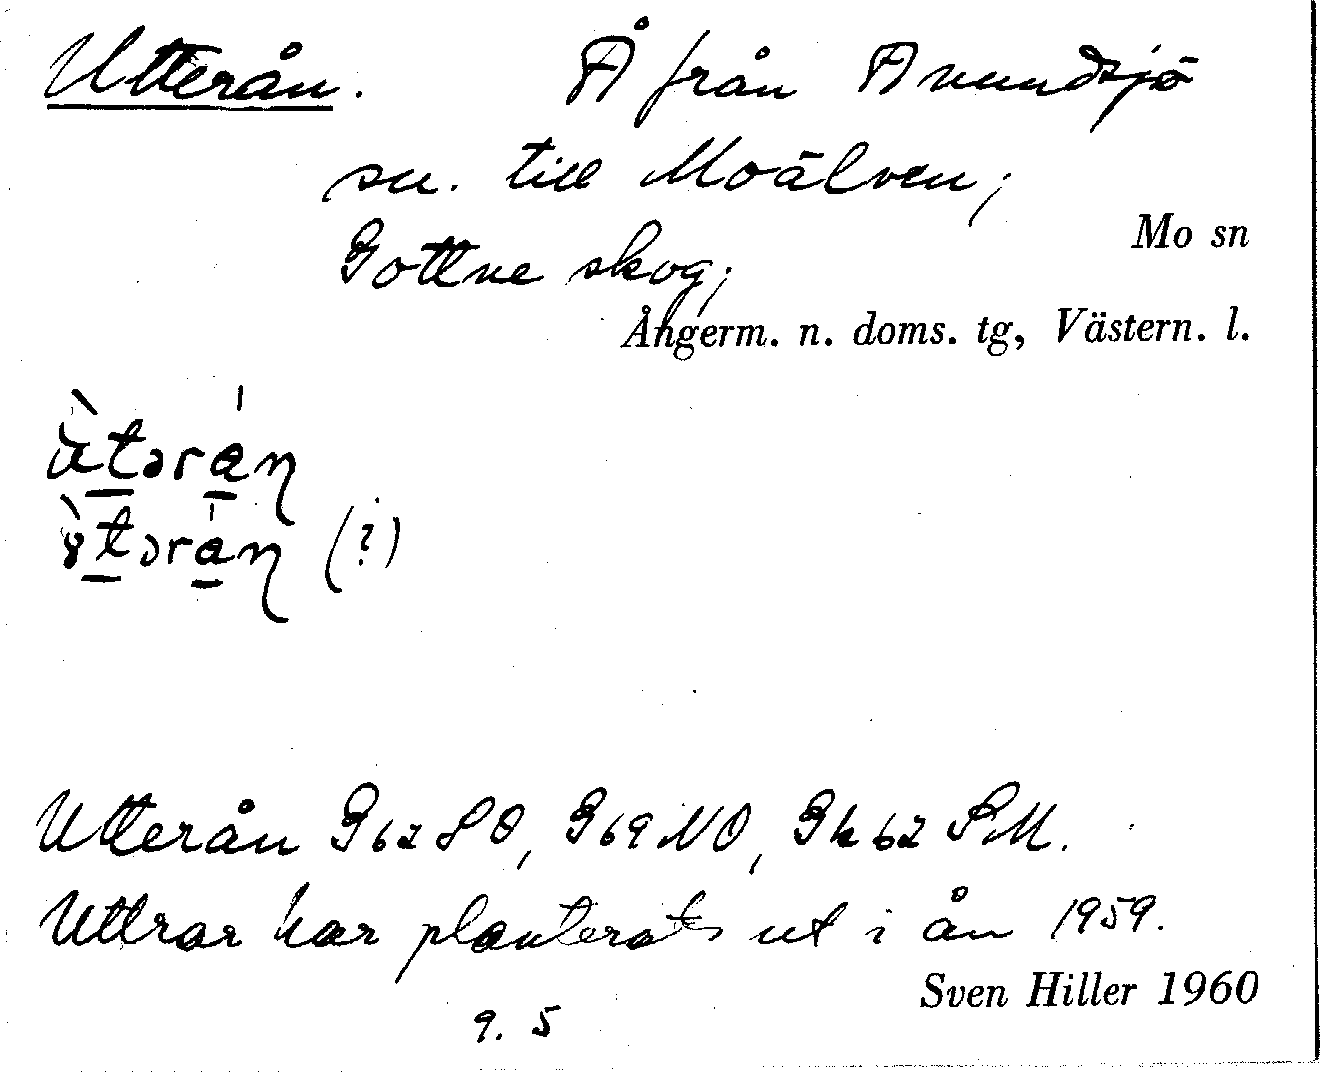 Utterån. Å från Anundsjö
sn. till Moälven;
Mo sn
Gottne skog;
Ångerm. n. doms. tg, Västern. l.
(?)
Utterån G62 SO, G69 NO, Gk 62 SM.
Uttrar har planterats ut i ån 1959.
Sven Hiller 1960
9. 5